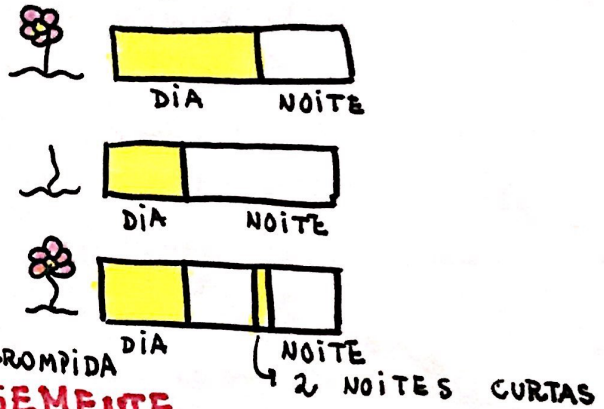 DIA NOITE
DIA NOITE
DIA NOITE
2 NOITES CURTAS